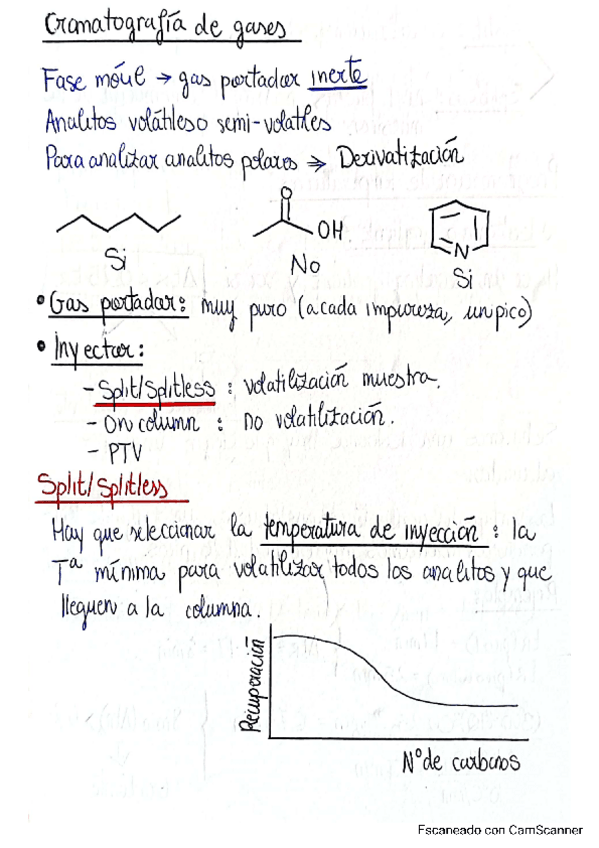 Cromatografía de gases
Fase móvil → gas portador inerte
Analitos volátiles o semi-volatiles
Para analizar analitos polares ⇒ Derivatización
O
OH
N
Si
No
Si
• Gas portador: muy puro (a cada impureza, un pico)
• Inyector:
- Split/Splitless : volatilización muestra.
- On column : no volatilización.
- PTV
Split/Splitless
Hay que seleccionar la temperatura de inyección : la
Tª mínima para volatilizar todos los analitos y que
lleguen a la columna.
Recuperación
Nº de carbonos
Escaneado con CamScanner